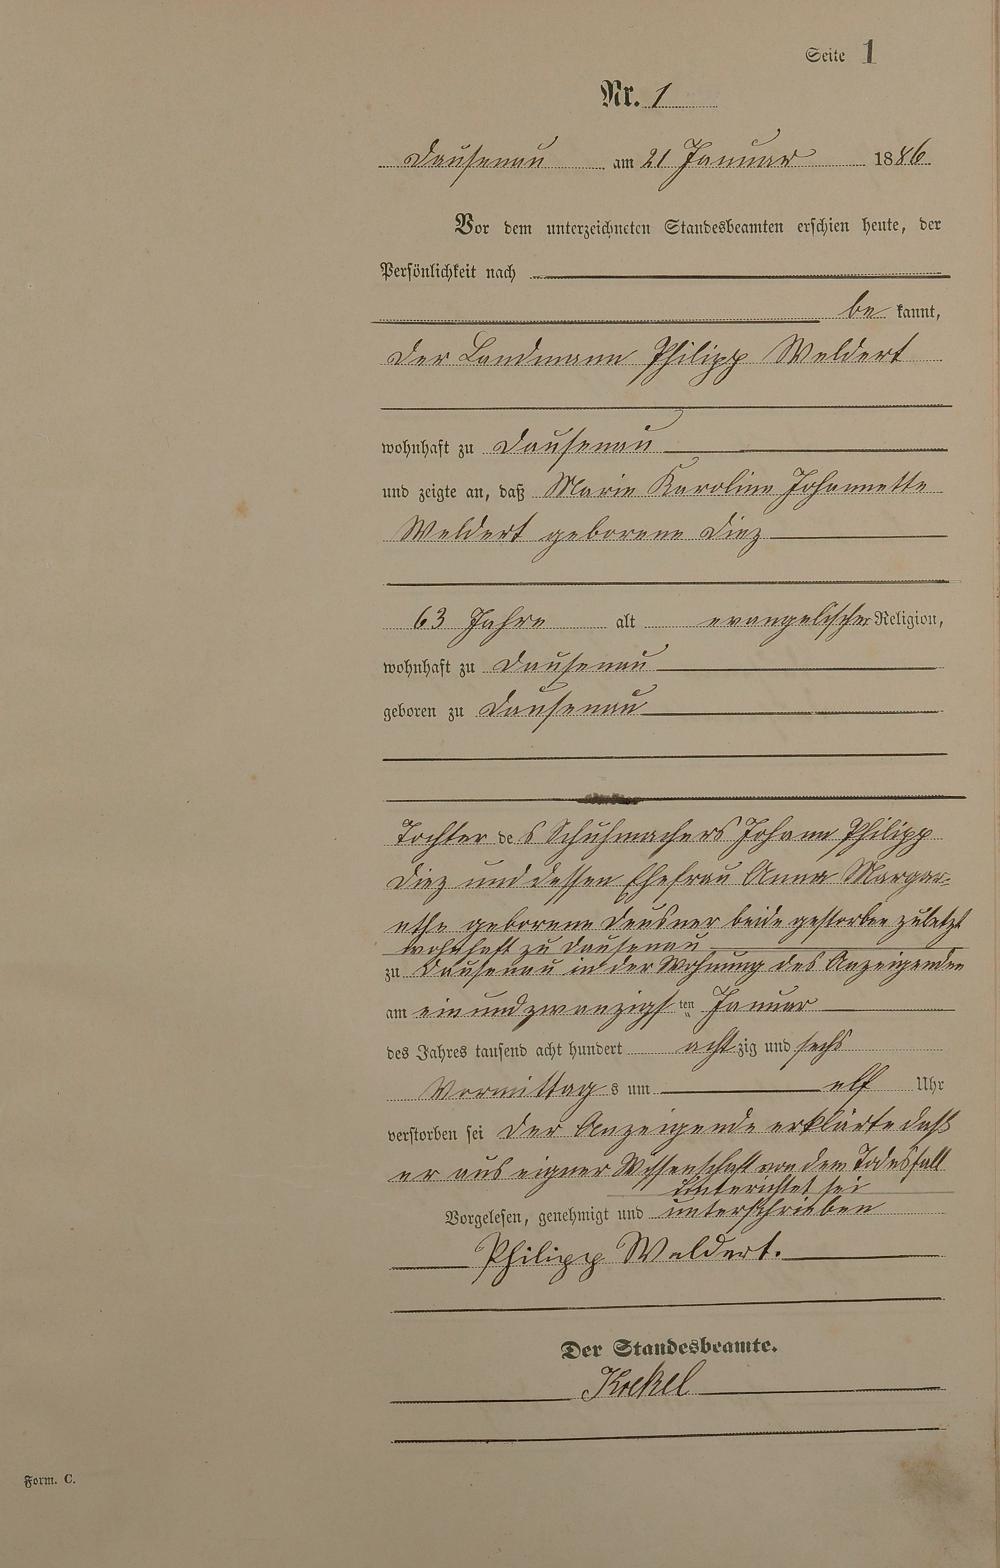 Seite 1
Nr. 1
Dausenau am 21 Januar 1886
Vor dem unterzeichneten Standesbeamten erschien heute, der
Persönlichkeit nach
be kannt,
der Landmann Philipp Weldert
wohnhaft zu Dausenau
und zeigte an, daß Marie Karoline Johannette
Weldert geborene Diez
63 Jahre alt evangelischer Religion,
wohnhaft zu Dausenau
geboren zu Dausenau
Tochter des Schuhmachers Johann Philipp
Diez und dessen Ehefrau Anna Margar-
ethe geborene Deusner beide gestorben zuletzt
wohnhaft zu Dausenau
zu Dausenau in der Wohnung des Anzeigenden
am ein und zwanzigsten Januar
des Jahres tausend acht hundert achtzig und sechs
Vormittags um elf Uhr
verstorben sei der Anzeigende erklärte daß
er aus eigner Wissenschaft von dem Todesfall
unterrichtet sei
Vorgelesen, genehmigt und unterschrieben
Philipp Weldert.
Der Standesbeamte.
Krekel
Form. C.